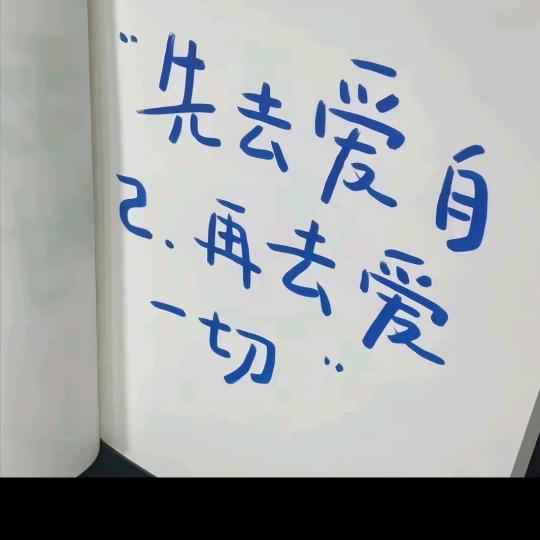 "先去爱自
己.再去爱
一切"